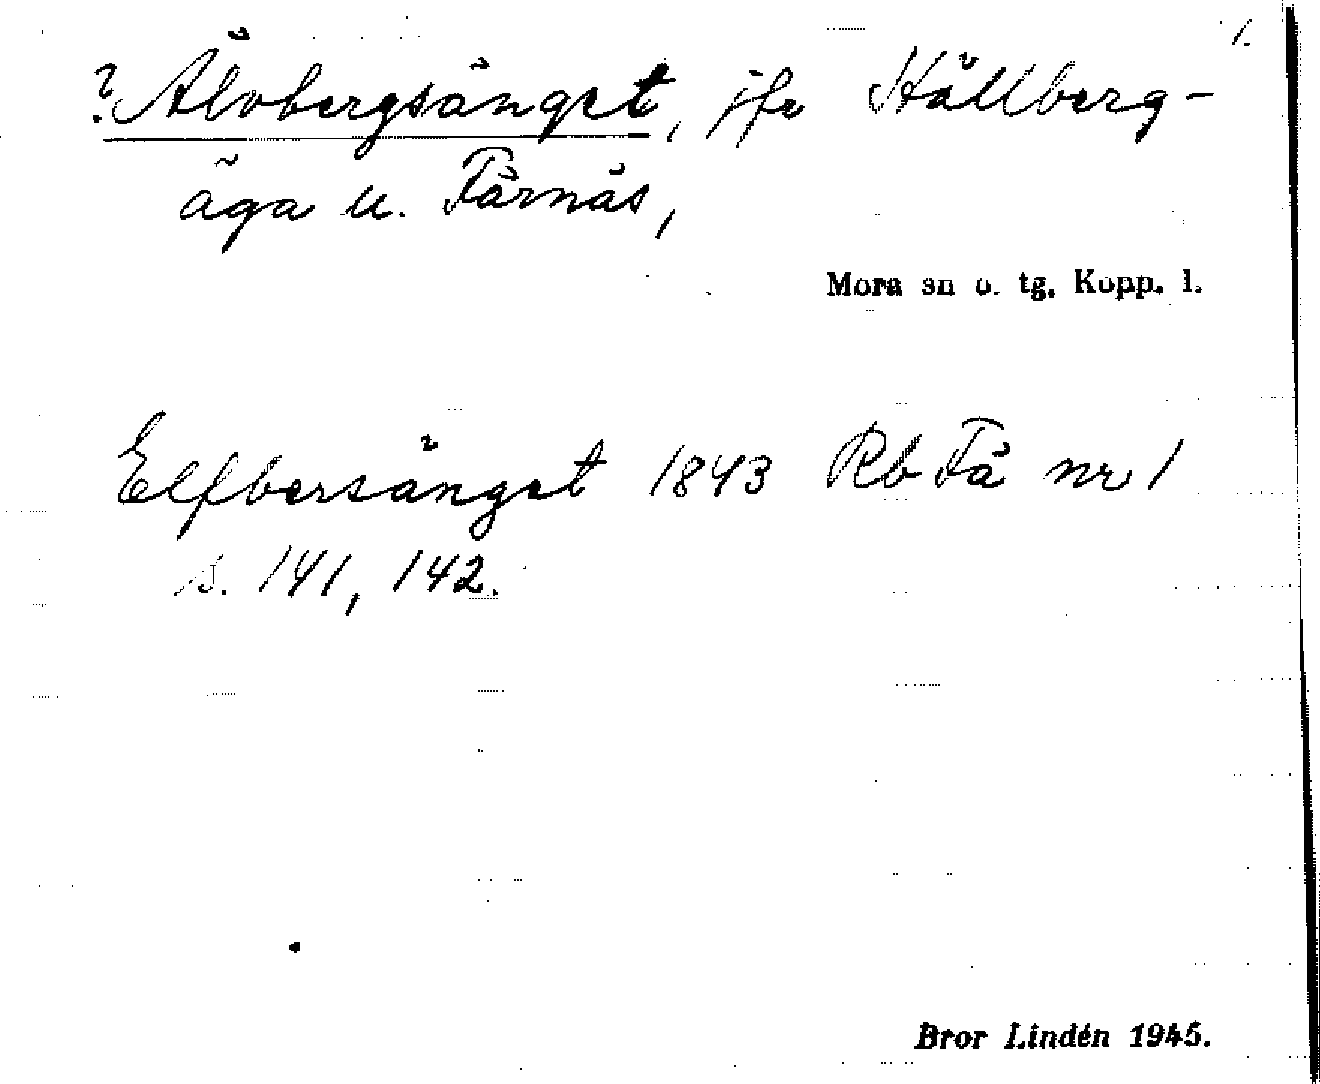 1.
? Älvbergsänget, jfr Hällberg-
äga u. Färnäs,
Mora sn o. tg. Kopp. l.
Elfbersänget 1843 Rb Fä nr 1
s. 141, 142.
Bror Lindén 1945.